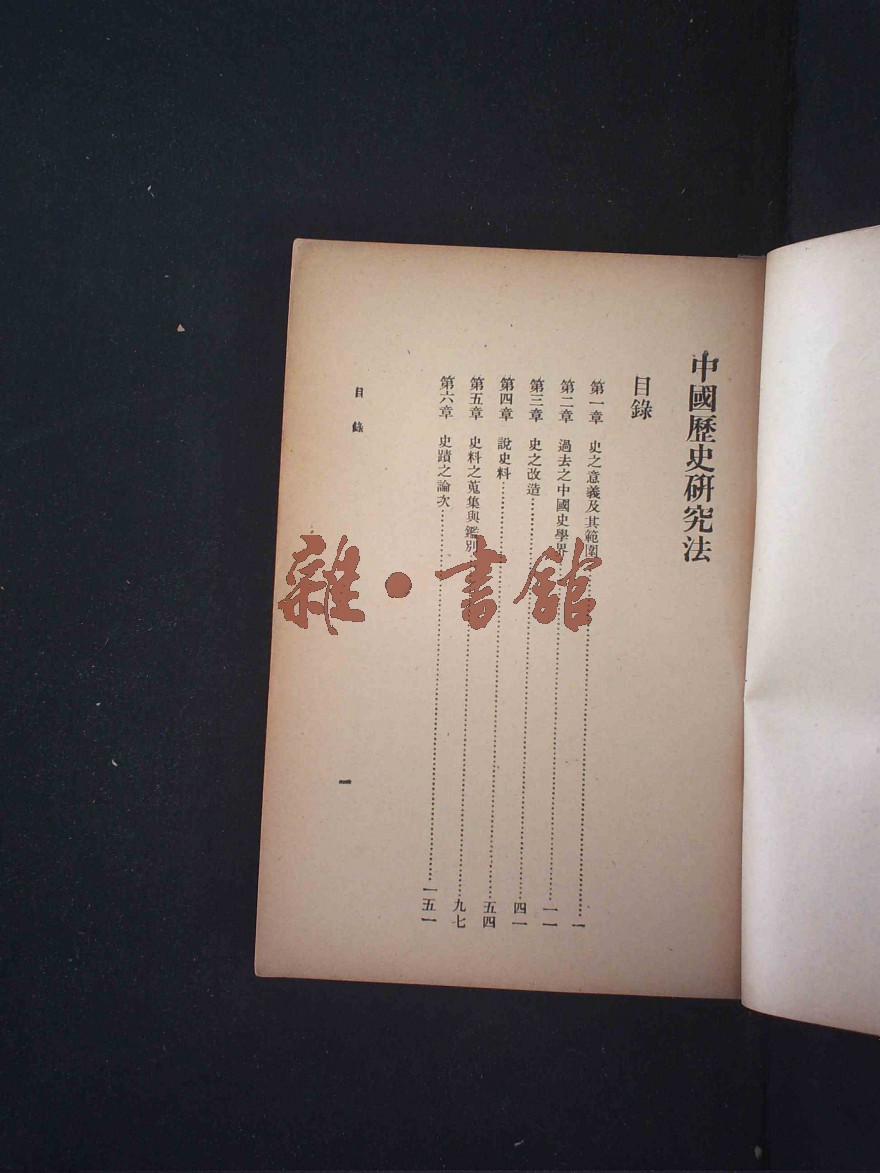 中國歷史研究法
目錄
第一章　史之意義及其範圍……一
第二章　過去之中國史學界……一一
第三章　史之改造……四一
第四章　說史料……五四
第五章　史料之蒐集與鑑別……九七
第六章　史蹟之論次……一五一
目錄
一
雜·書館